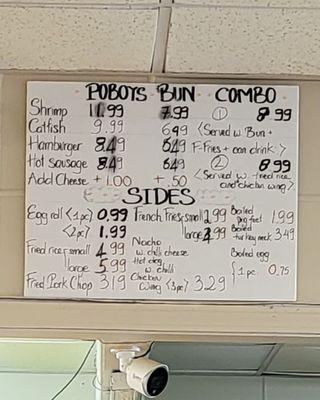 POBOYS BUN COMBO
Shrimp 11.99 7.99 ① 8.99
Catfish 9.99 6.49 <Served w. Bun +
Hamburger 8.49 6.49 F-Fries + can drink>
Hot sausage 8.49 6.49 ② 8.99
Add Cheese + 1.00 + .50 <Served w. fried rice
and chicken wing>
SIDES
Egg roll <1pc> 0.99 French Fries small 2.99 Boiled pig feet 1.99
<2pc> 1.99 large 3.99 Boiled turkey neck 3.49
Fried rice small 4.99 Nacho w. chilli cheese Boiled egg
large 5.99 Hot dog w. chilli {1 pc. 0.75
Fried Pork Chop 3.19 Chicken Wing <3pc> 3.29